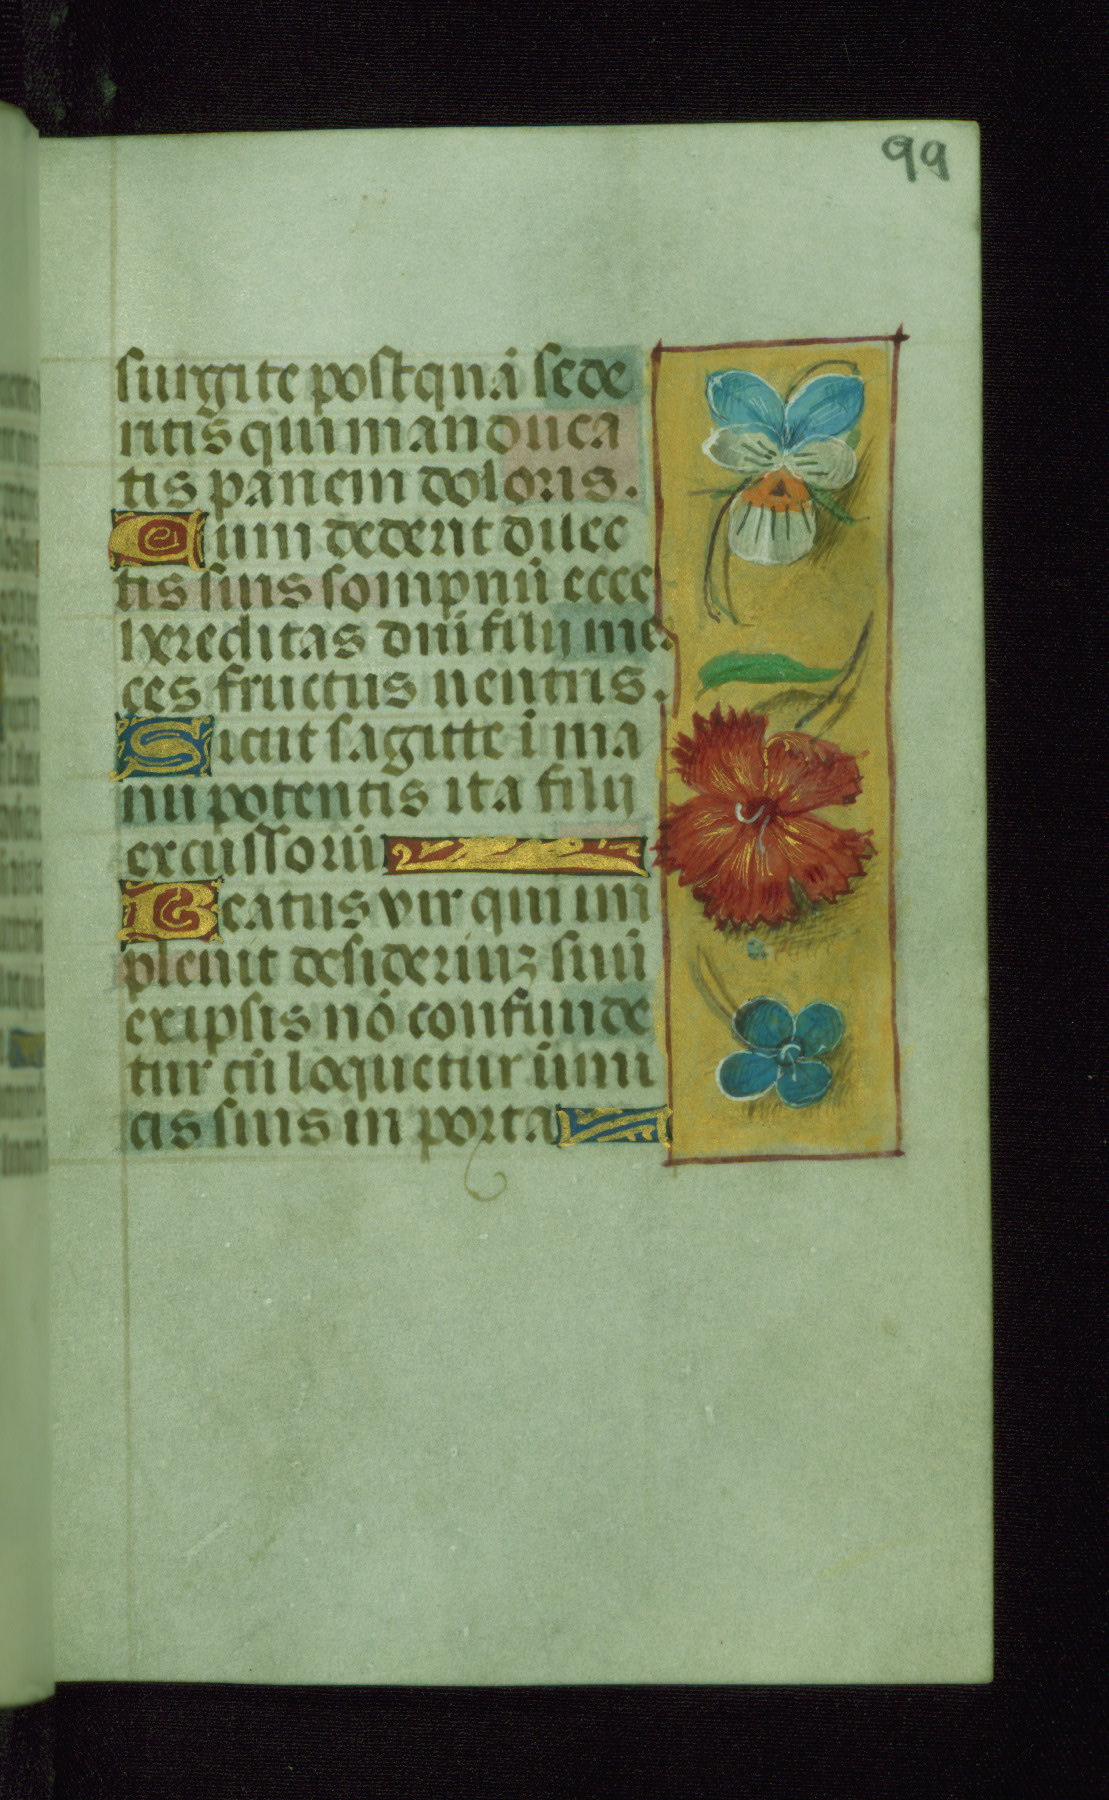 99
surgite postquā sede
ritis qui manduca
tis panem doloris.
Cum dederit dilec
tis suis sompnū ecce
hereditas dnī filij mer
ces fructus uentris.
Sicut sagitte ī ma
nu potentis ita filij
excussorū
Beatus vir qui im
pleuit desideriuʒ suū
ex ipsis nō confunde
tur cū loquetur īnimi
cis suis in porta